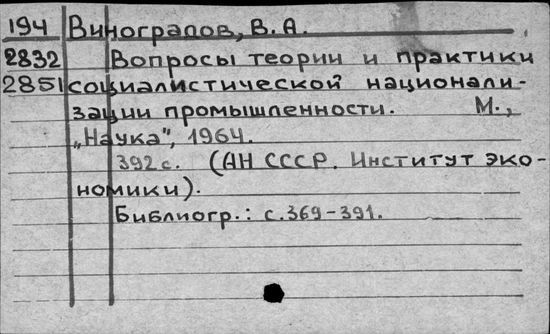 194 Виноградов, В.А.
2832 Вопросы теории и практики
2851 социалистической национали-
зации промышленности. М.,
„Наука", 1964.
392 с. (АН СССР. Институт эко-
номики).
Библиогр.: с.369-391.